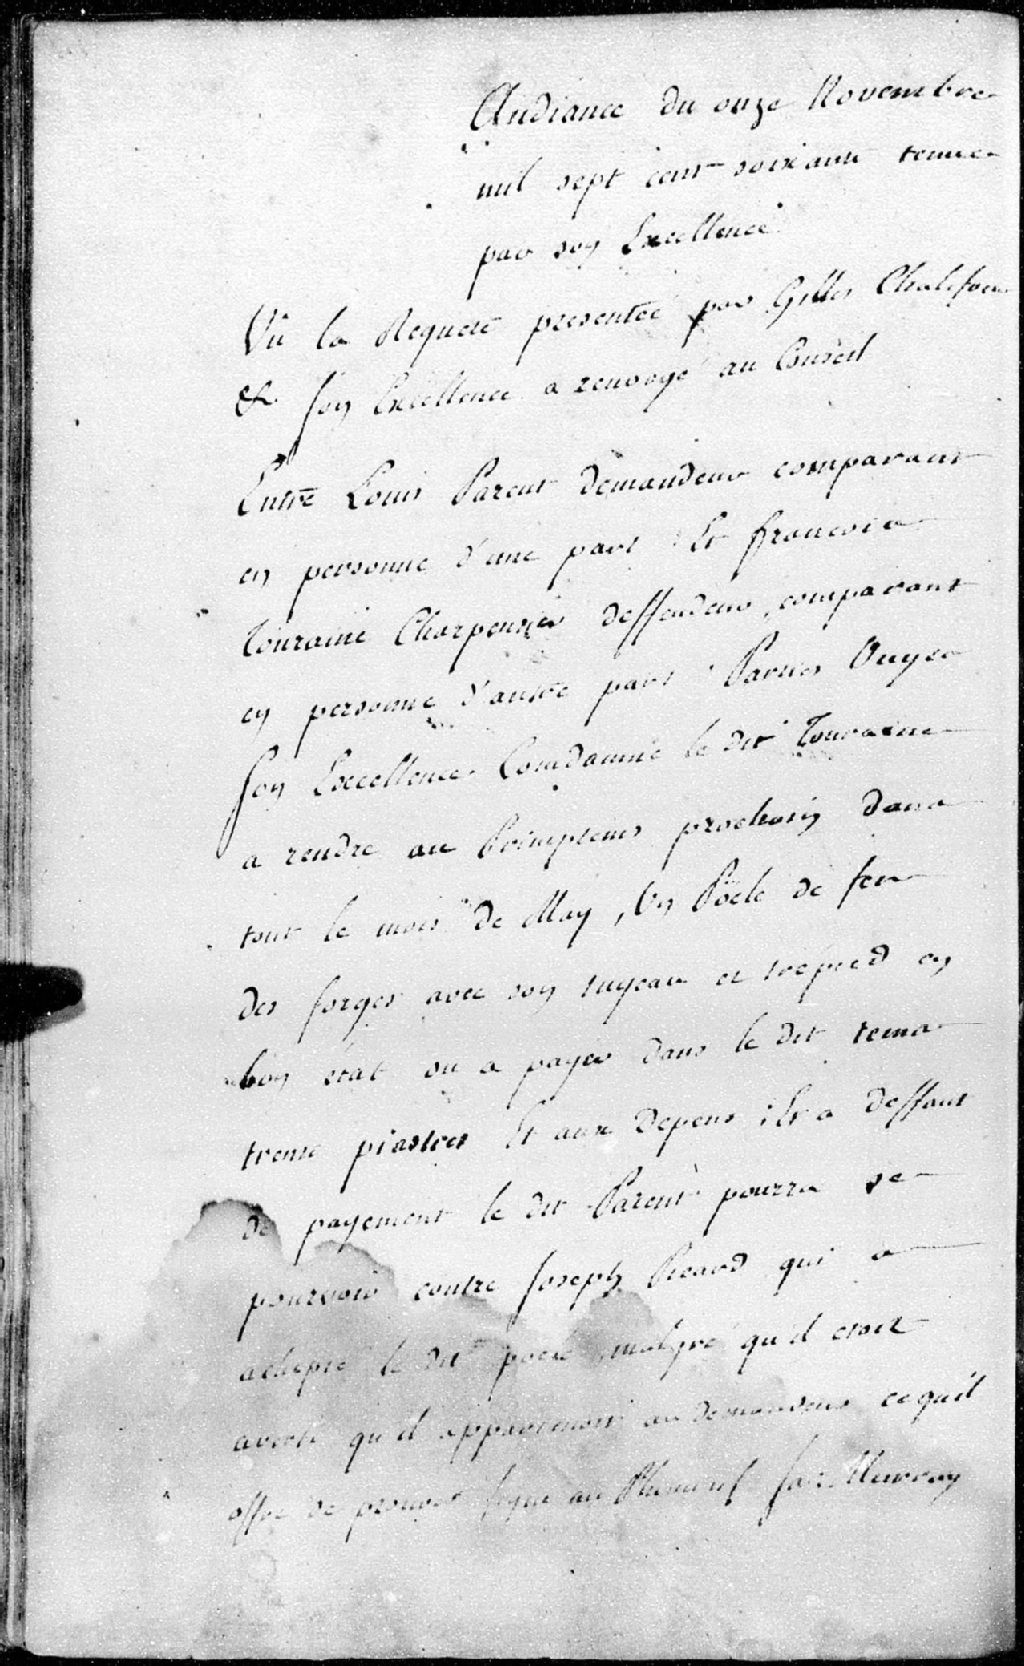 Audiance du onze Novembre
mil sept cent soixante tenue
par son Excellence
Vu la Requete presentée par Gilles Chalifour
& Son Excellence a renvoyé au Conseil
Entre Louis Parent demandeur comparant
en personne d'une part Et francois
Touraine Charpentier deffendeur, comparant
en personne d'autre part Parties Ouyes
Son Excellence Condamne le dit Touraine
a rendre au Primptems prochain dans
tout le mois de May, Un Poële de fer
des forges avec son tuyeau et trépied en
bon état ou a payer dans le dit tems
trente piastres Et aux Depens ; Et a deffaut
de payement le dit Parent pourra se
pourvoir contre Joseph Picard qui a
achepté le dit poele malgré qu'il etoit
averti qu'il appartenoit au demandeur ce quil
offre de prouver signé au Jas: Murray